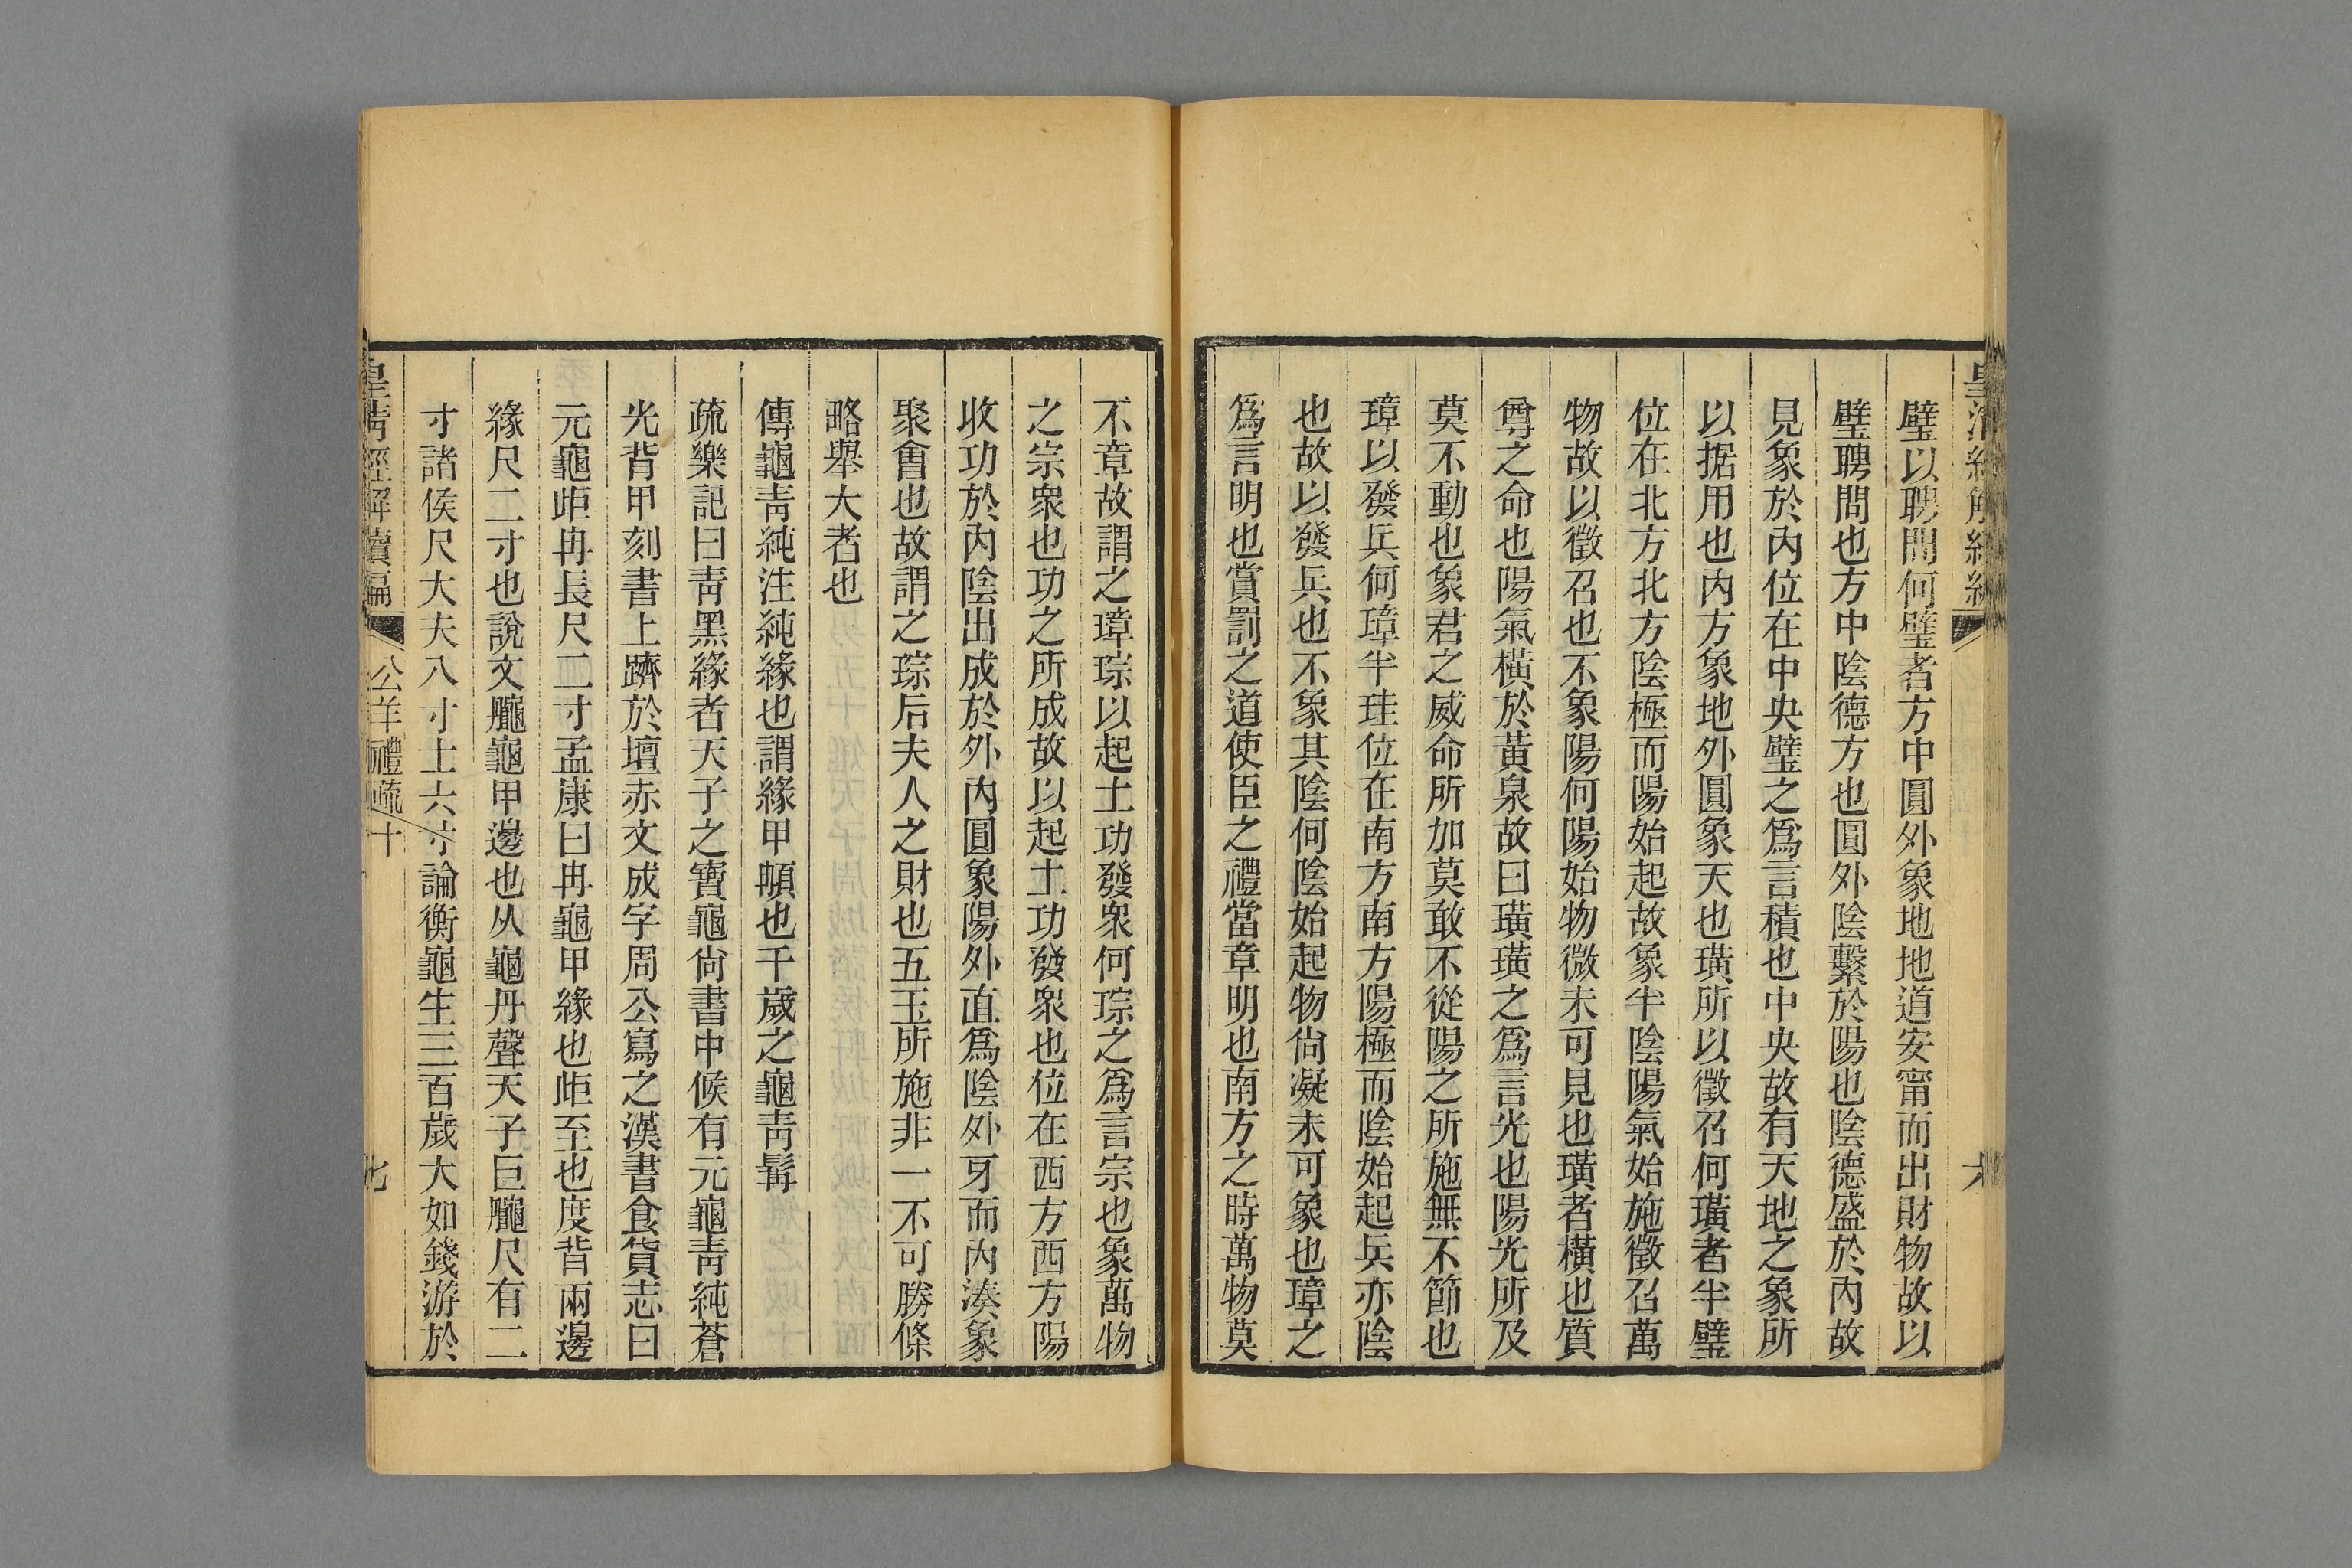 璧以聘問何璧者方中圓外象地地道安甯而出財物故以
璧聘問也方中陰德方也圓外陰繫於陽也陰德盛於內故
見象於內位在中央璧之爲言積也中央故有天地之象所
以据用也內方象地外圓象天也璜所以徵召何璜者半璧
位在北方北方陰極而陽始起故象半陰陽氣始施徵召萬
物故以徵召也不象陽何陽始物微未可見也璜者橫也質
尊之命也陽氣橫於黃泉故曰璜璜之爲言光也陽光所及
莫不動也象君之威命所加莫敢不從陽之所施無不節也
璋以發兵何璋半珪位在南方南方陽極而陰始起兵亦陰
也故以發兵也不象其陰何陰始起物尙凝未可象也璋之
爲言明也賞罰之道使臣之禮當章明也南方之時萬物莫
不章故謂之璋琮以起土功發衆何琮之爲言宗也象萬物
之宗衆也功之所成故以起土功發衆也位在西方西方陽
收功於內陰出成於外內圓象陽外直爲陰外牙而內湊象
聚會也故謂之琮后夫人之財也五玉所施非一不可勝條
略舉大者也
傳龜靑純注純緣也謂緣甲𩑺也千歲之龜靑髯
疏樂記曰靑黑緣者天子之寶龜尙書中候有元龜靑純蒼
光背甲刻書上躋於壇赤文成字周公寫之漢書食貨志曰
元龜岠冉長尺二寸孟康曰冉龜甲緣也岠至也度背兩邊
緣尺二寸也說文𪚮龜甲邊也从龜丹聲天子巨𪚮尺有二
寸諸侯尺大夫八寸士六寸論衡龜生三百歲大如錢游於
皇淸經解續編
公羊禮疏十
七